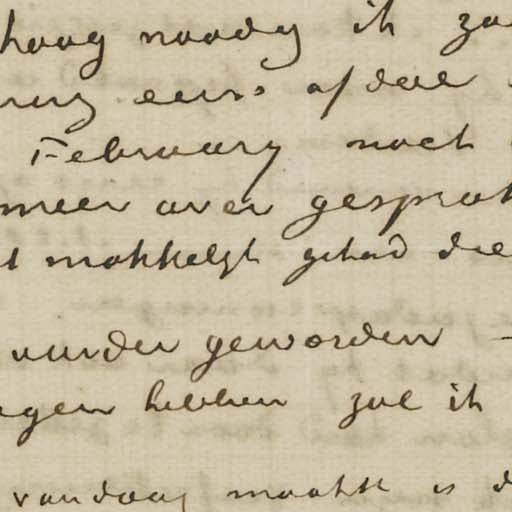 hoog noodig ik zal
eens afdeel
February noch
meer over gesprok
makkelyk gehad die
ander geworden —
agen hebben zal ik
vandaag maakte is d